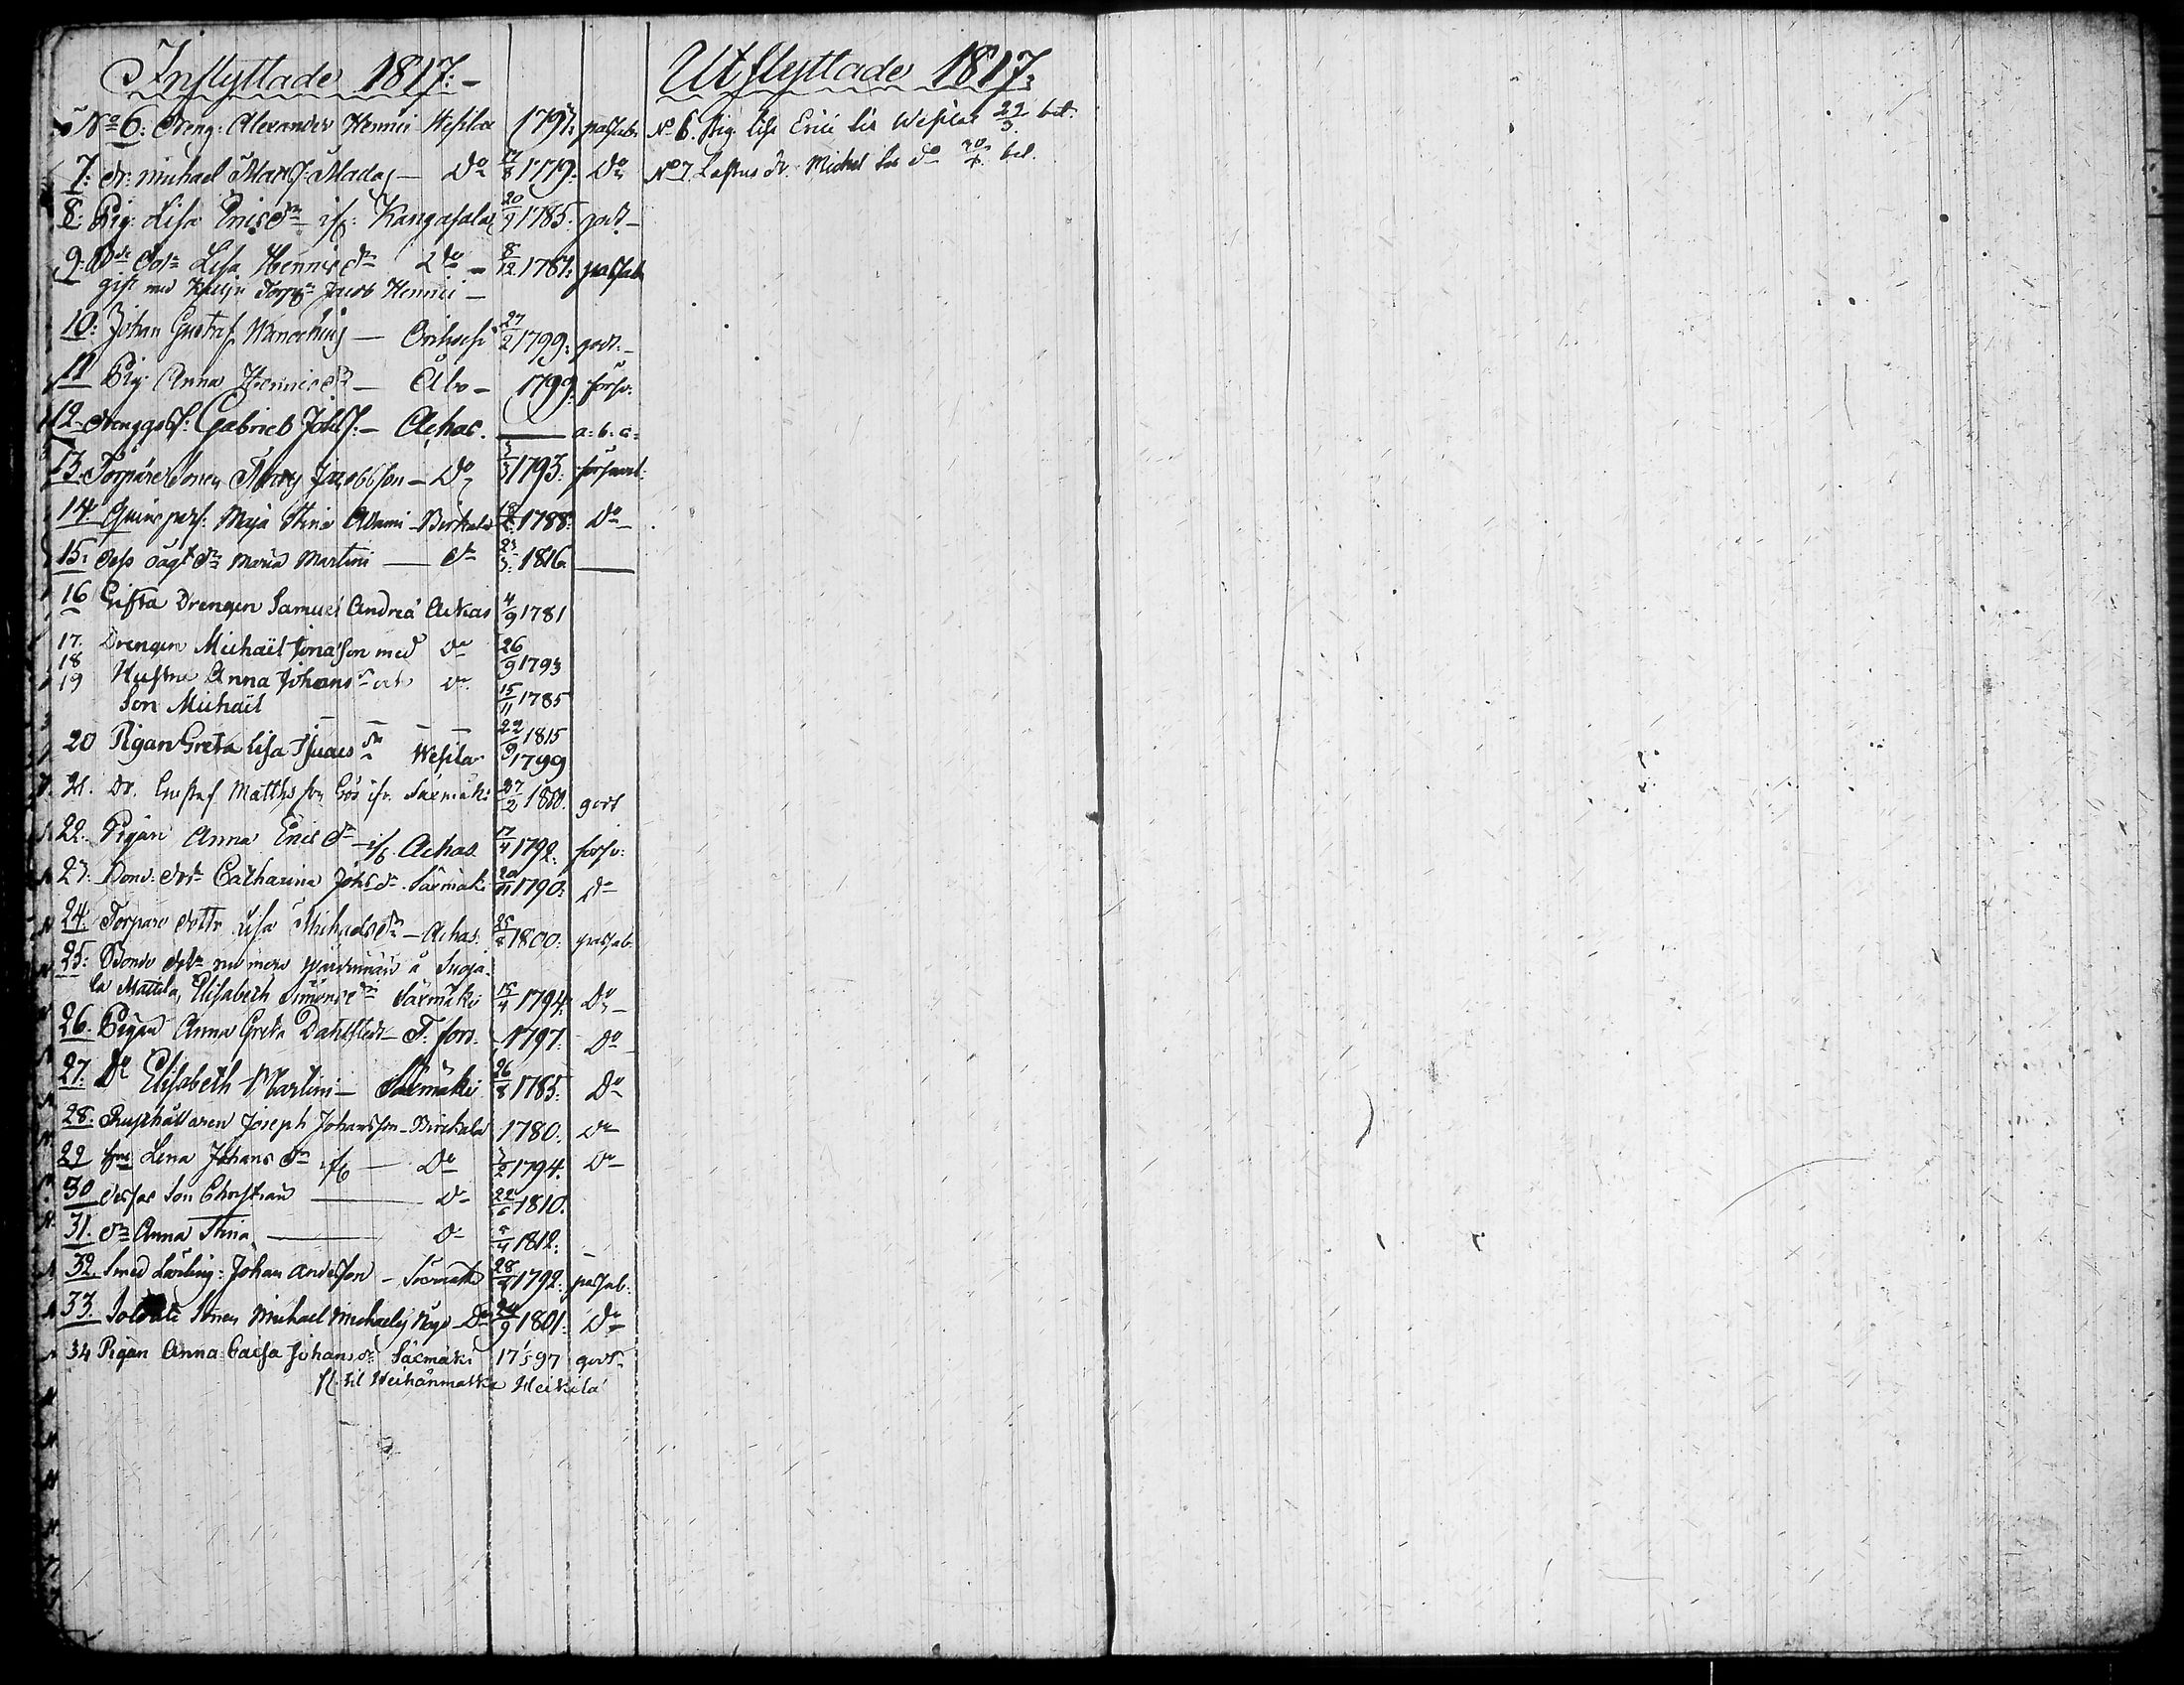 Inflyttade 1817:-
No 6: Dreng: Alexander Henrici Wesilax 1797: passab.
7: Dr: Michael 17/8 1779: Do
8: Pig: Lisa Ericsdr if: Kangasala 20/9 1785. godt -
9: Lisa Henricsdr Do - 8/12 1787: passab
gift med Jacob Henrici -
10: Johan Gustaf - Orihvesi 27/2 1799: godt. -
11 Pig: Anna Henricsdr - Åbo - 1799: försv:
12. Gabriel - Achas. — a: b: c:
13. Torpare Sonen Jacobsson - Do 3/3 1793: försvarl:
14 Qvins pers: Maja Stina Adami - Birkala 1788: Do -
15: Dess oägt dr Maria Martini — do 23/3: 1816. —
16 Gifta Drengen Samuel Andreæ Ackas 4/9 1781
17. Drengen Michaël Jonasson med do 26/9 1793
18 Hustru Anna Johansdr och do 15/11 1785
19 Son Michaël 22/9 1815
20 Pigan Greta Lisa Isuacs dr Wesila 1799
21. Dr. Gustaf Matths son ifr. Säxmäki 27/2 1800. godt
22. Pigan Anna Ericsdr - if: Achas 17/4 1792: försv:
23: Bond: dotr Catharina Johsdr. Säxmäki 20/11 1790: do
24: Torpare dottr Lisa Michaelsdr - Achas. 25/8 1800: passab.
25: Bonde dotr nu mera wärdinnan å Suoja-
la Mattila, Elisabeth Simonsdr Säxmäki 15/4 1794: Do -
26. Pigan Anna Greta Dahlstedt - T: fors. 1797: Do
27: Do Elisabeth Martini - Säxmäki 26/8 1785: Do
28: Rusthållaren Joseph Johansson - Birckala 1780. Do
29 Lena Johansdr if — Do 3/2 1794. Do
30 desses Son Christian — Do 22/5 1810.
31. dr Anna Stina — Do 5/4 1812:
32. Smed Lärling: Johan Andersson - Säxmäki 28/4 1792: passab:
33. Soldats Sonen Michael Michaelis - Do 24/9 1801: Do
34 Pigan Anna Caisa Johansdr Säxmäki 1797 godt
fl. til Weihånmatka Heikilä
Utflyttade 1817:
No 6. Pig. Lisa Erici til Wesilax 22/3 bet.
No 7. Dr. Michel do bet.